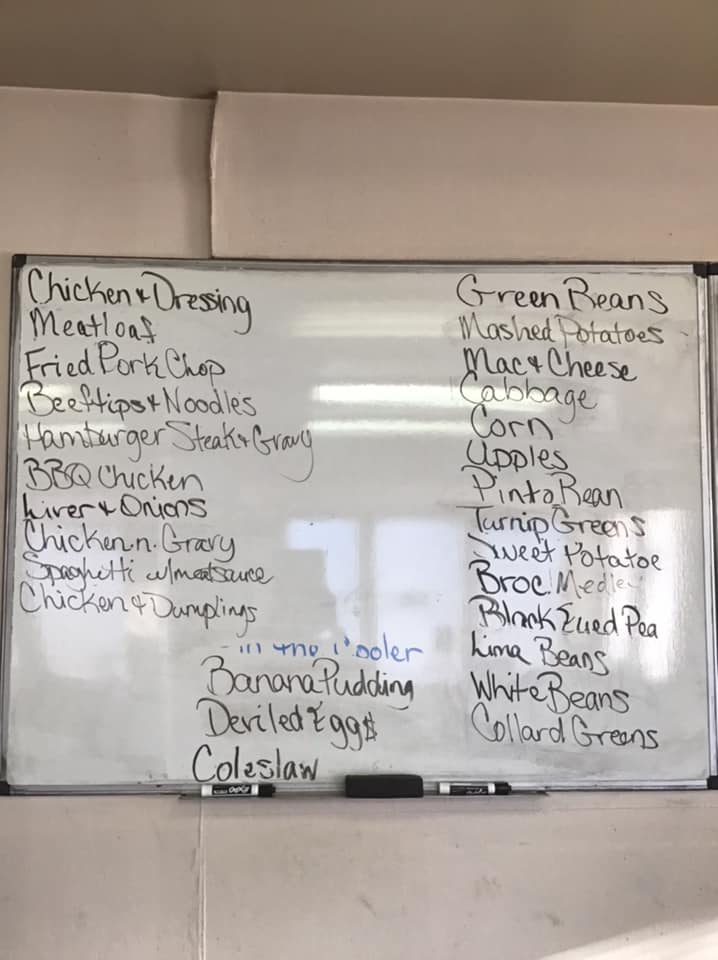 Chicken & Dressing
Meatloaf
Fried Pork Chop
Beeftips & Noodles
Hamburger Steak & Gravy
BBQ Chicken
Liver & Onions
Chicken n. Gravy
Spaghetti w/meatsauce
Chicken & Dumplings
Green Beans
Mashed Potatoes
Mac & Cheese
Cabbage
Corn
Apples
Pinto Bean
Turnip Greens
Sweet Potatoe
Broc Medley
Black Eyed Pea
Lima Beans
White Beans
Collard Greens
in the Cooler
Banana Pudding
Deviled Eggs
Coleslaw
EXPO